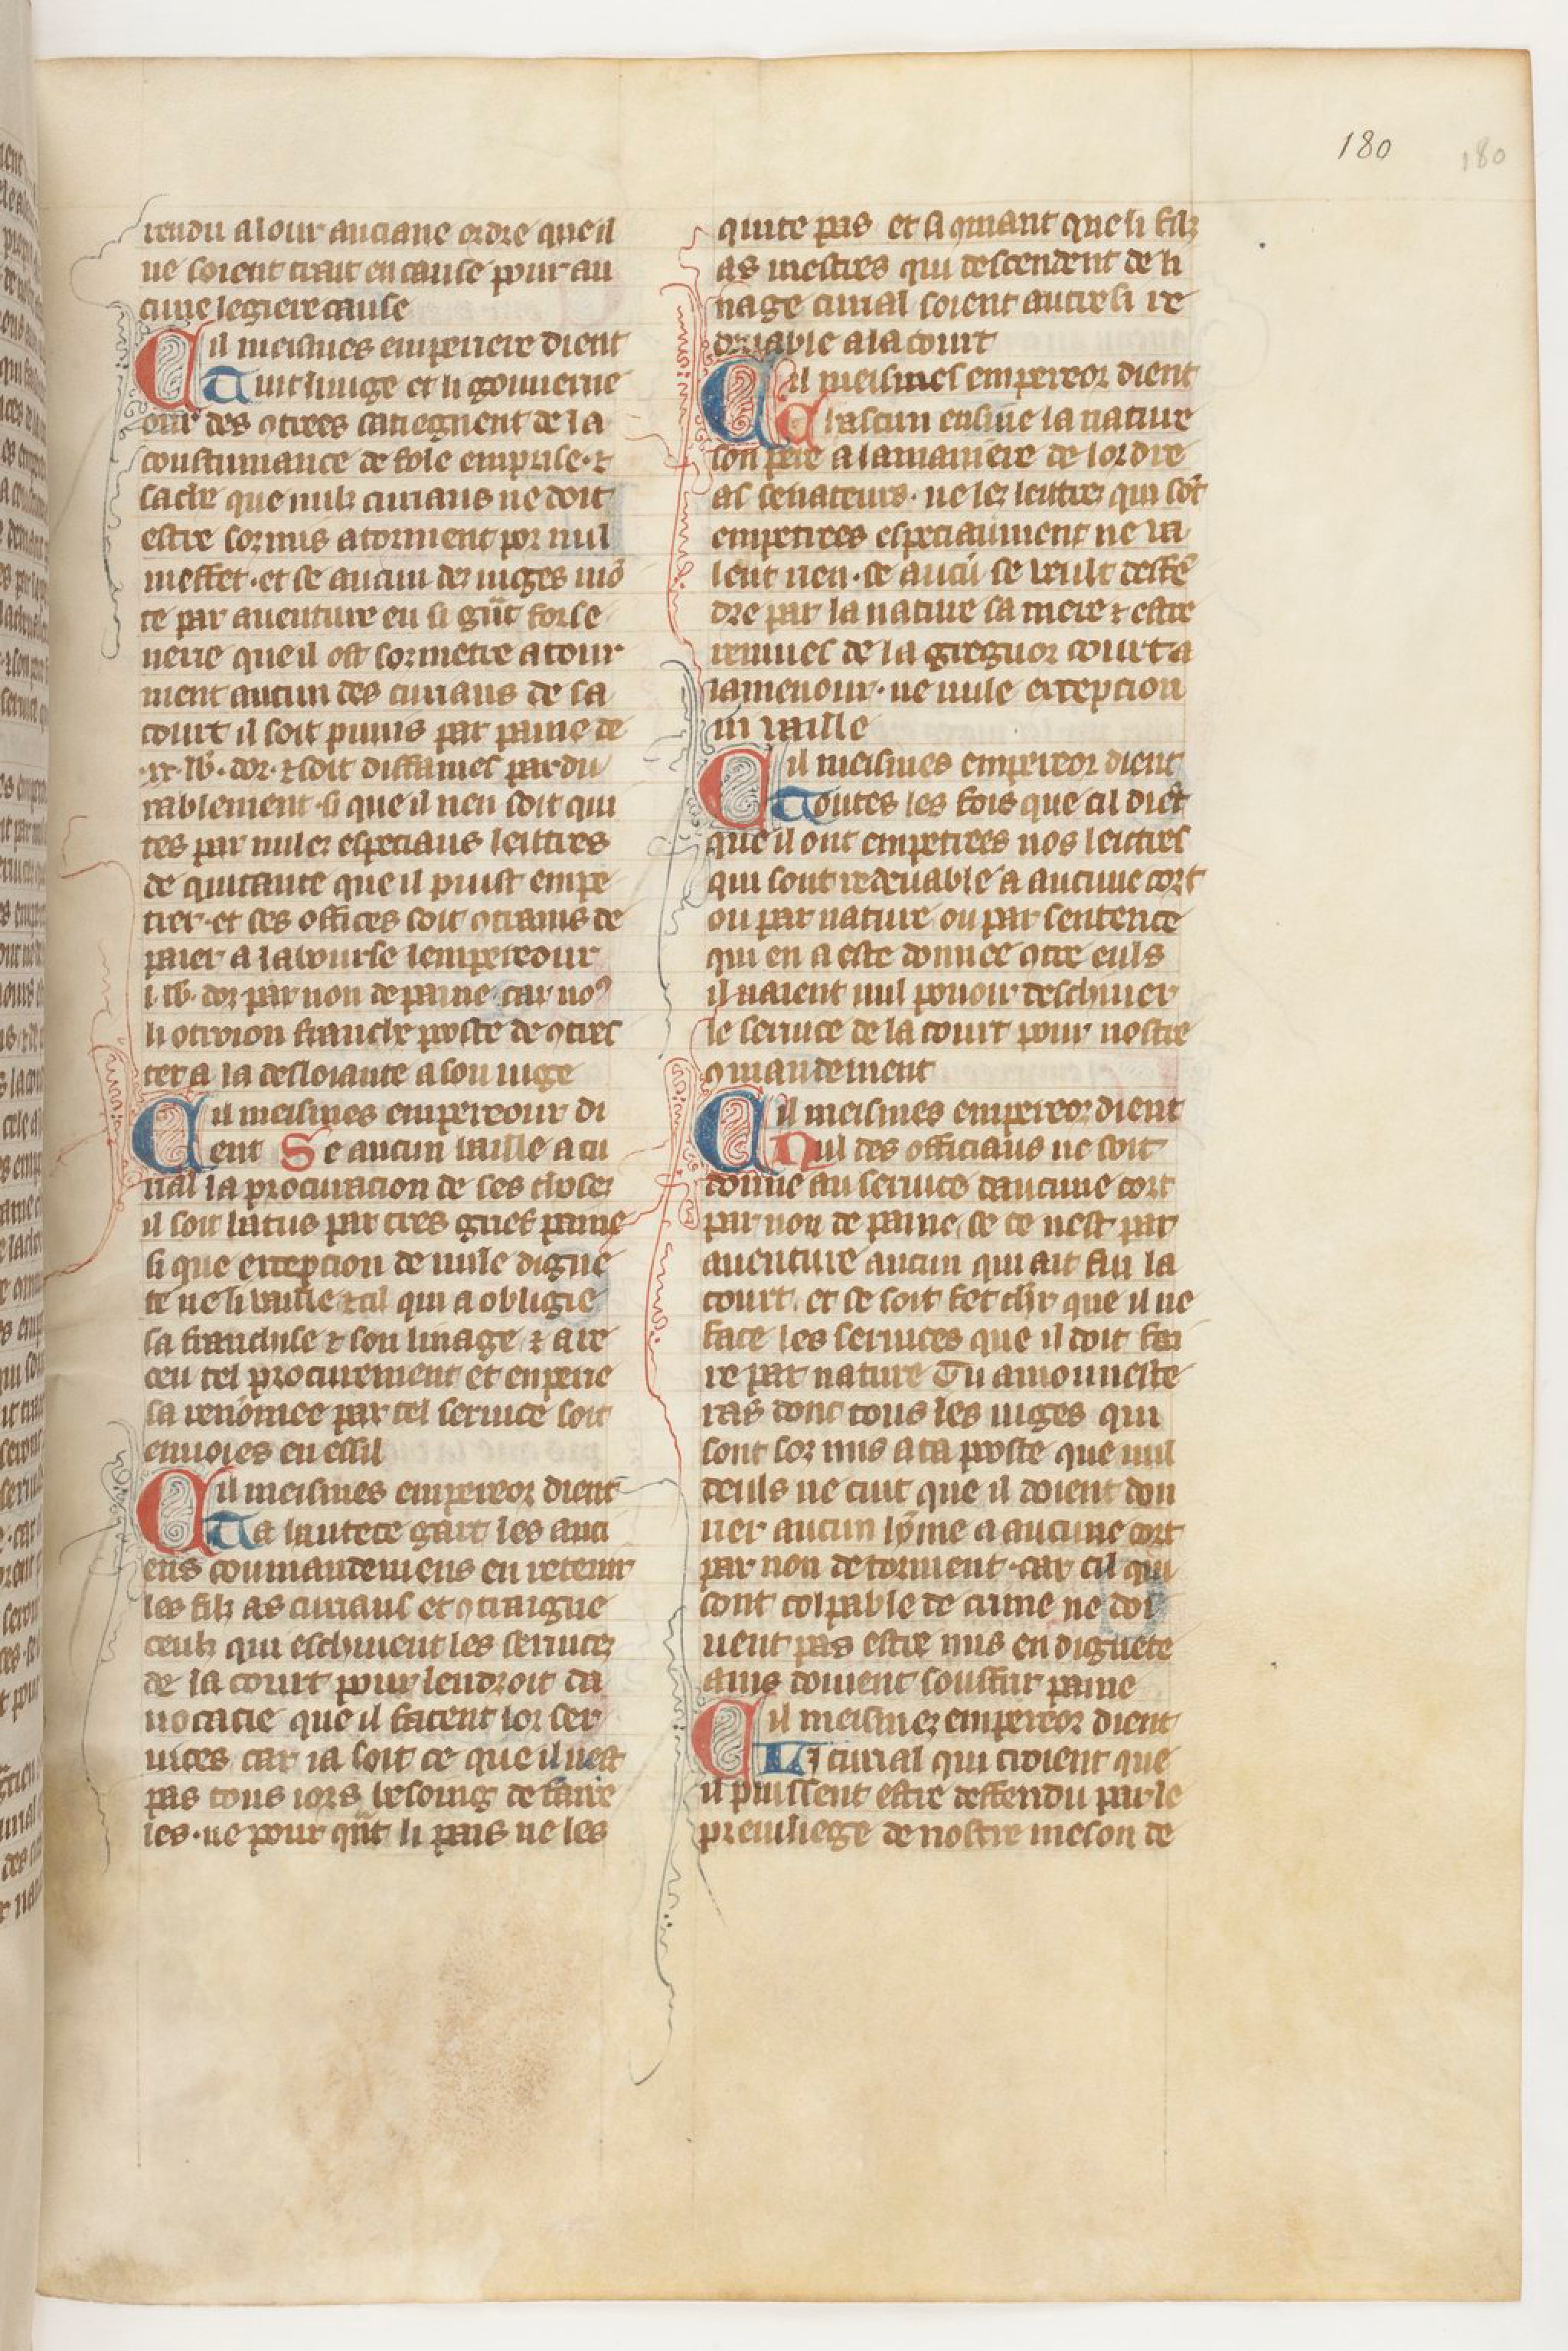 180
180
rendu a lour anciane ordre que il
ne soient trait en cause pour au
cune legiere cause
Cil meismes emperiere dient
Tuit li iuge et li gouuerne
our des ꝯtrees satiegnent de la
coustumance de fole emprise · ⁊
sache que nulz curiaus ne doit
estre sormis a torment por nul
meffet · et se aucun dez iuges mō
te par auenture en si gn̄t forse
nerie que il ost sormetre a tour
ment aucun des curiaus de sa
court il soit punis par paine de
·xx· lb̄· dor · ⁊ soit diffames pardu
rablement · si que il nen soit qui
tes par nulez especiaus lettres
de quitance que il puist empe
trer · et ses offices soit ꝯtrains de
paier a la bourse lempereour
·l· lb̄· dor par non de paine · car noꝰ
li otroion franche poste de ꝯtres
ter a la desloiaute a son iuge
Cil meismes empereour di
ent Se aucun baille a cu
rial la procuracion de ses chosez
il soit batus par tres grief paine
si que excepcion de nule digne
te ne li vaille ⁊ cil qui a obligie
sa franchise ⁊ son linage ⁊ a re
ceu tel procurement et enpirie
sa renōmee par tel seruice soit
enuoies en essil
Cil meismes empereor dient
Ta hautece gart les anci
ens coumandemens en retenir
les filz as curiaus et ꝯtraigne
ceulz qui eschiuent les seruicez
de la court pour lendroit da
uocacie que il facent lor ser
uices car ia soit ce que il nest
pas tous iors besoing de faire
les · ne pour qn̄t li pais ne les
quite pas et si ꝯmant que li filz
as mestres qui descendent de li
nage curial soient autresi re
deuable a la court
Cil meismes empereor dient
Chascun ensiue la nature
son pere a la maniere de lordre
as senateurs · ne lez lettrez qui sōt
empetrees especiaument ne va
lent rien · se aucū se veult deffē
dre par la nature sa mere ⁊ estre
remues de la gregnor court a
la menour · ne nule excepcion
ni vaille
Cil meismes empereor dient
Toutes les fois que cil diēt
que il ont empetrees nos lettres
qui sont redeuable a aucune cort
ou par nature ou par sentence
qui en a este donnee ꝯtre euls
il naient nul pouoir deschiuer
le seruice de la court pour nostre
ꝯmandement
Cil meismes empereor dient
Nul des officiaus ne soit
donne au seruice daucune cort
par non de paine se ce nest par
auenture aucun qui ait fui la
court · et se soit fet chr̄ que il ne
face les seruices que il doit fai
re par nature Tu amonneste
ras donc tous les iuges qui
sont sor mis a ta poste que nul
deuls ne cuit que il doient don
ner aucun hōme a aucune cort
par non de torment · car cil qui
sont colpable de crime ne doi
uent pas estre mis en dignete
ains doiuent souffrir paine
Cil meismez empereor dient
Li curial qui croient que
il puissent estre deffendu par le
preuiliege de nostre meson de